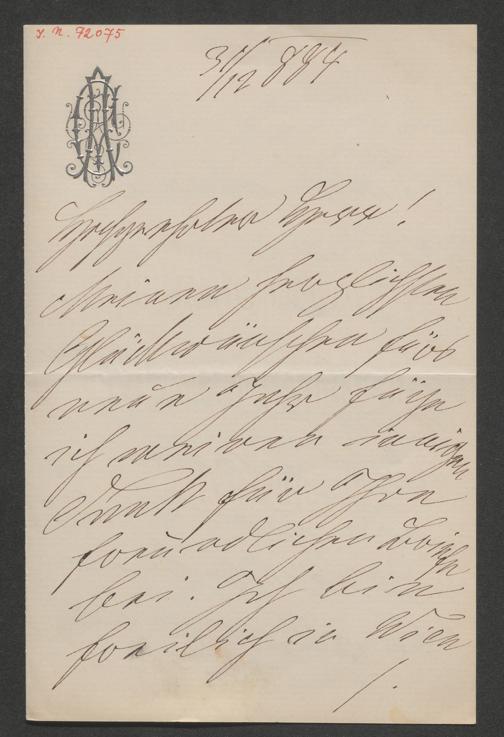 I. N. 92075
31/12 884
Hochgeehrter Herr!
Meinen herzlichsten
Glückwünschen fürs
neue Jahr füge
ich meinen innigen
Dank für Ihre
freundlichen
bei. Ich bin
freilich in Wien
/.